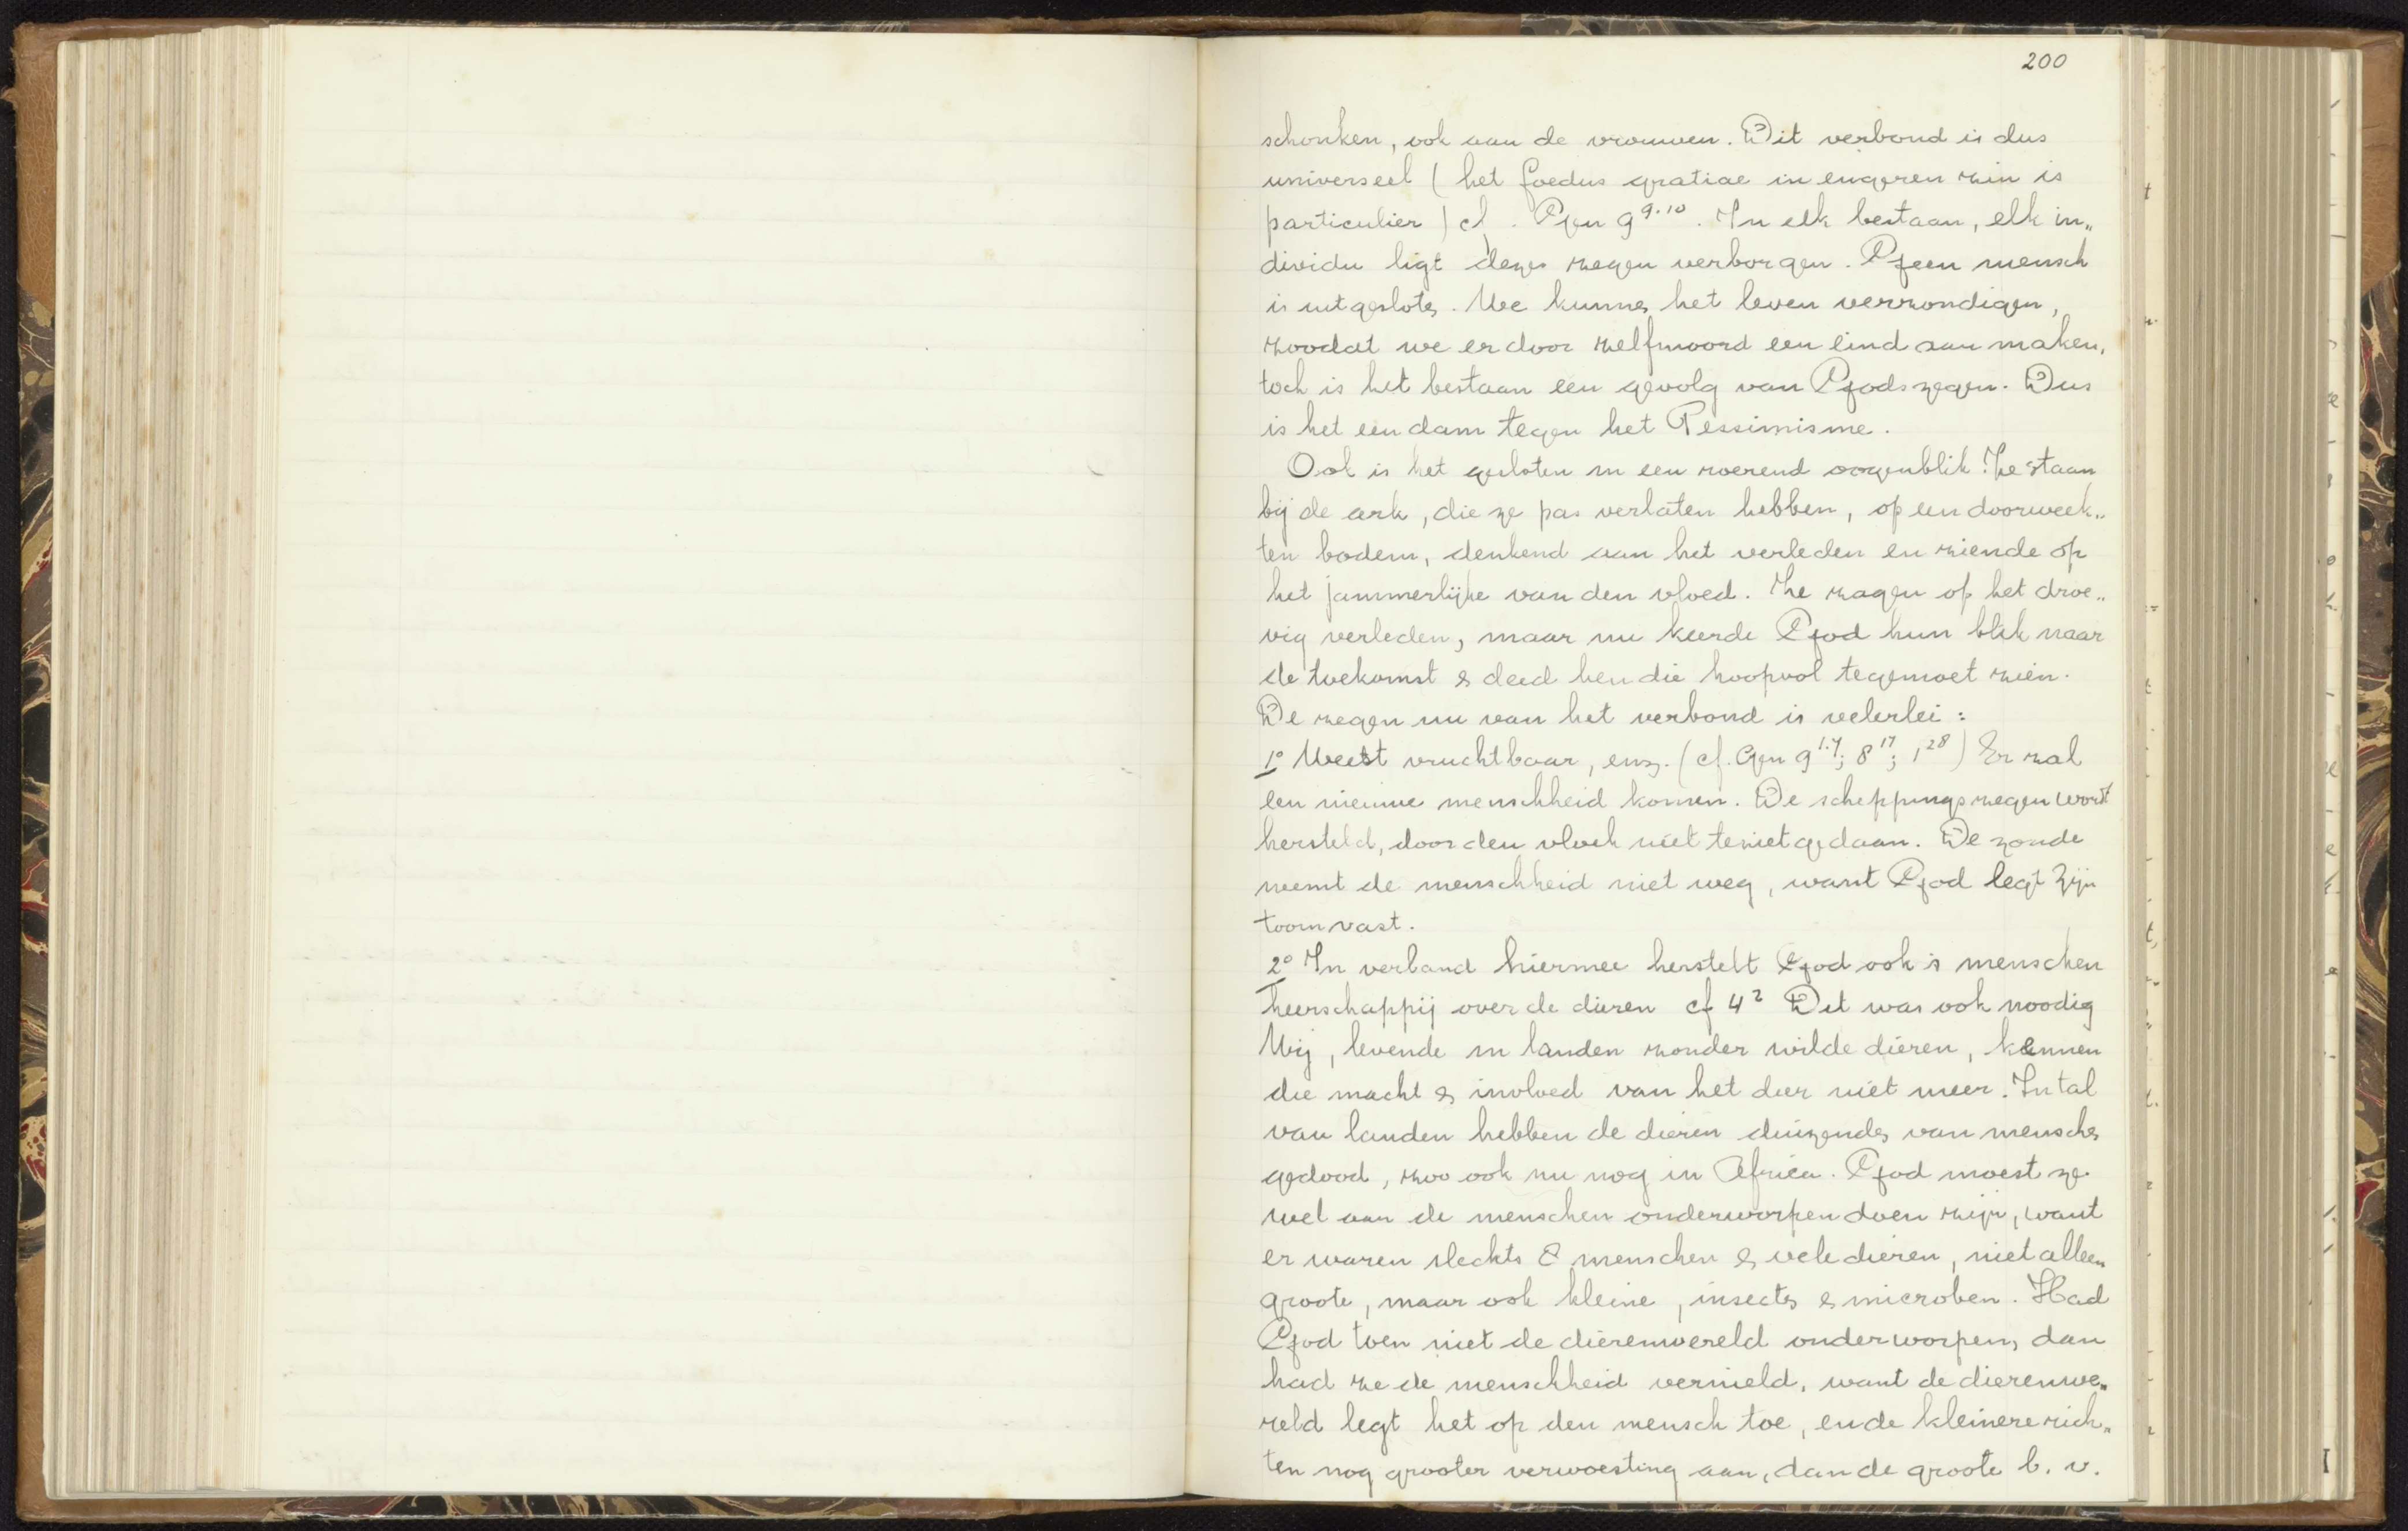 200
schonken, ook aan de vrouwen. Dit verbond is dus
universeel (het foedus gratiae in engeren zin is
particulier) cf. Gen 9 9.10. In elk bestaan, elk in„
dividu ligt deze zegen verborgen. Geen mensch
is uitgesloten. We kunnen het leven verzondigen,
zoodat we er door zelfmoord een eind aan maken,
toch is het bestaan een gevolg van Gods zegen. Dus
is het een dam tegen het Pessimisme.
Ook is het gesloten in een roerend oogenblik. Ze staan
bij de ark, die ze pas verlaten hebben, op een doorweek„
ten bodem, denkend aan het verleden en ziende op
het jammerlijke van den vloed. Ze zagen op het droe„
vig verleden, maar nu keerde God hun blik naar
de toekomst & deed hen die hoopvol tegemoet zien.
De zegen nu van het verbond is velerlei:
1° Weest vruchtbaar, enz. (cf. Gen 9 1.7; 8 17; 1 28) Er zal
een nieuwe menschheid komen. De scheppingszegen wordt
hersteld, door den vloek niet teniet gedaan. De zonde
neemt de menschheid niet weg, want God legt Zijn
toorn vast.
2° In verband hiermee herstelt God ook 's menschen
heerschappij over de dieren cf 4 2 Dit was ook noodig
Wij, levende in landen zonder wilde dieren, kennen
die macht & invloed van het dier niet meer. In tal
van landen hebben de dieren duizenden van menschen
gedood, zoo ook nu nog in Africa. God moest ze
wel aan de menschen onderworpen doen zijn, want
er waren slechts 8 menschen & vele dieren, niet alleen
groote, maar ook kleine, insecten & microben. Had
God toen niet de dierenwereld onderworpen, dan
had ze de menschheid vernield, want de dierenwe„
reld legt het op den mensch toe, en de kleinere rich„
ten nog grooter verwoesting aan, dan de groote b. v.